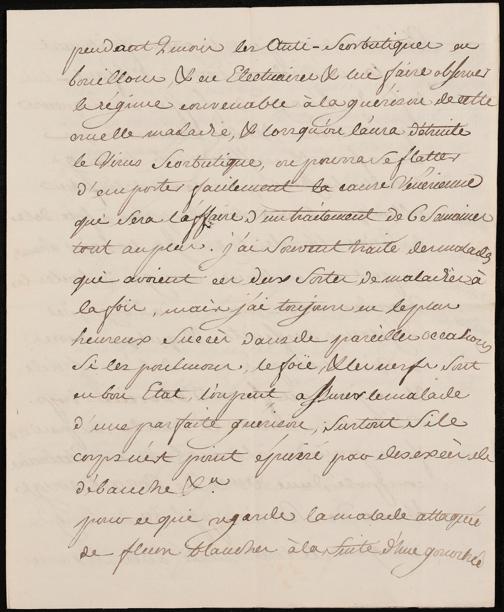 pendant 2 mois les Anti-Scorbutiques en
bouillons, & en Electuaires & lui faire observer
le régime convenable à la guérison de cette
cruelle maladie, & lorsqu'on l'aura détruite
le Virus Scorbutique, on pourra se flatter
d'emporter facilement la cause Vénérienne
qui sera l'affaire d'un traitement de 6 Semaines
tout au plus. j'ai Souvent traité des malades
qui avoient ces deux Sortes de maladies à
la fois, mais j'ai toujours eu le plus
heureux Succès dans de pareilles occasions
Si les poulmons, le foïe, & les nerfs sont
en bon Etat, l'on peut assurer le malade
d'une parfaite guérison, Surtout Si le
corps n'est point épuisé par des excès de
débauche &.
pour ce que regarde la malade attaquée
de fleurs blanches à la Suite d'une gonorhée